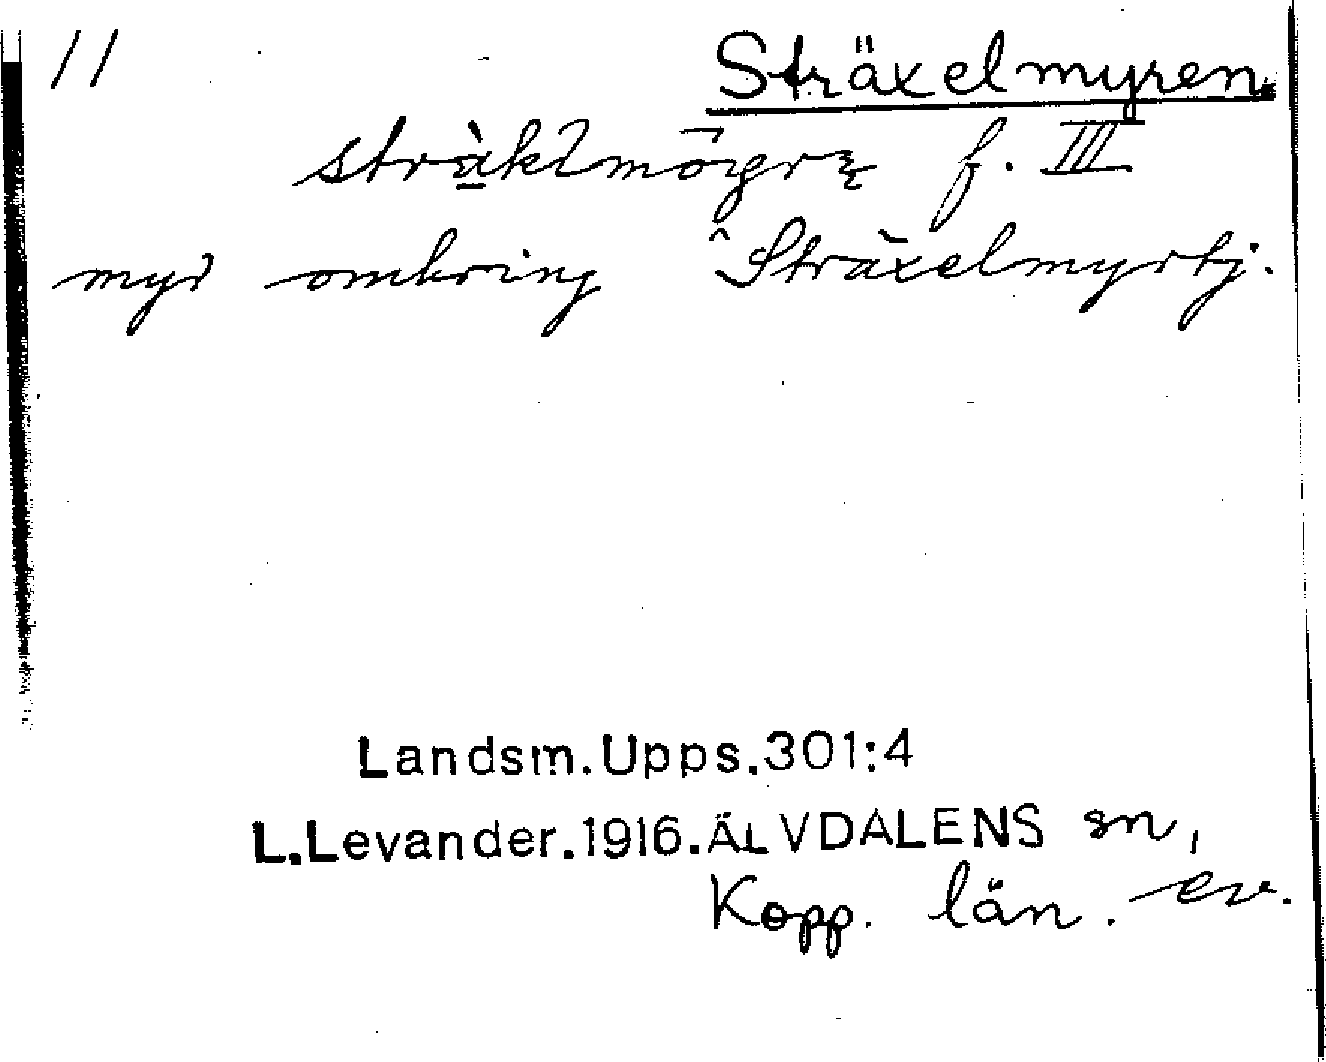 11 Sträxelmyren
f. III
myr omkring Sträxelmyrtj.
Landsm.Upps.301:4
L.Levander.1916.ÄLVDALENS sn,
Kopp. län. ev.